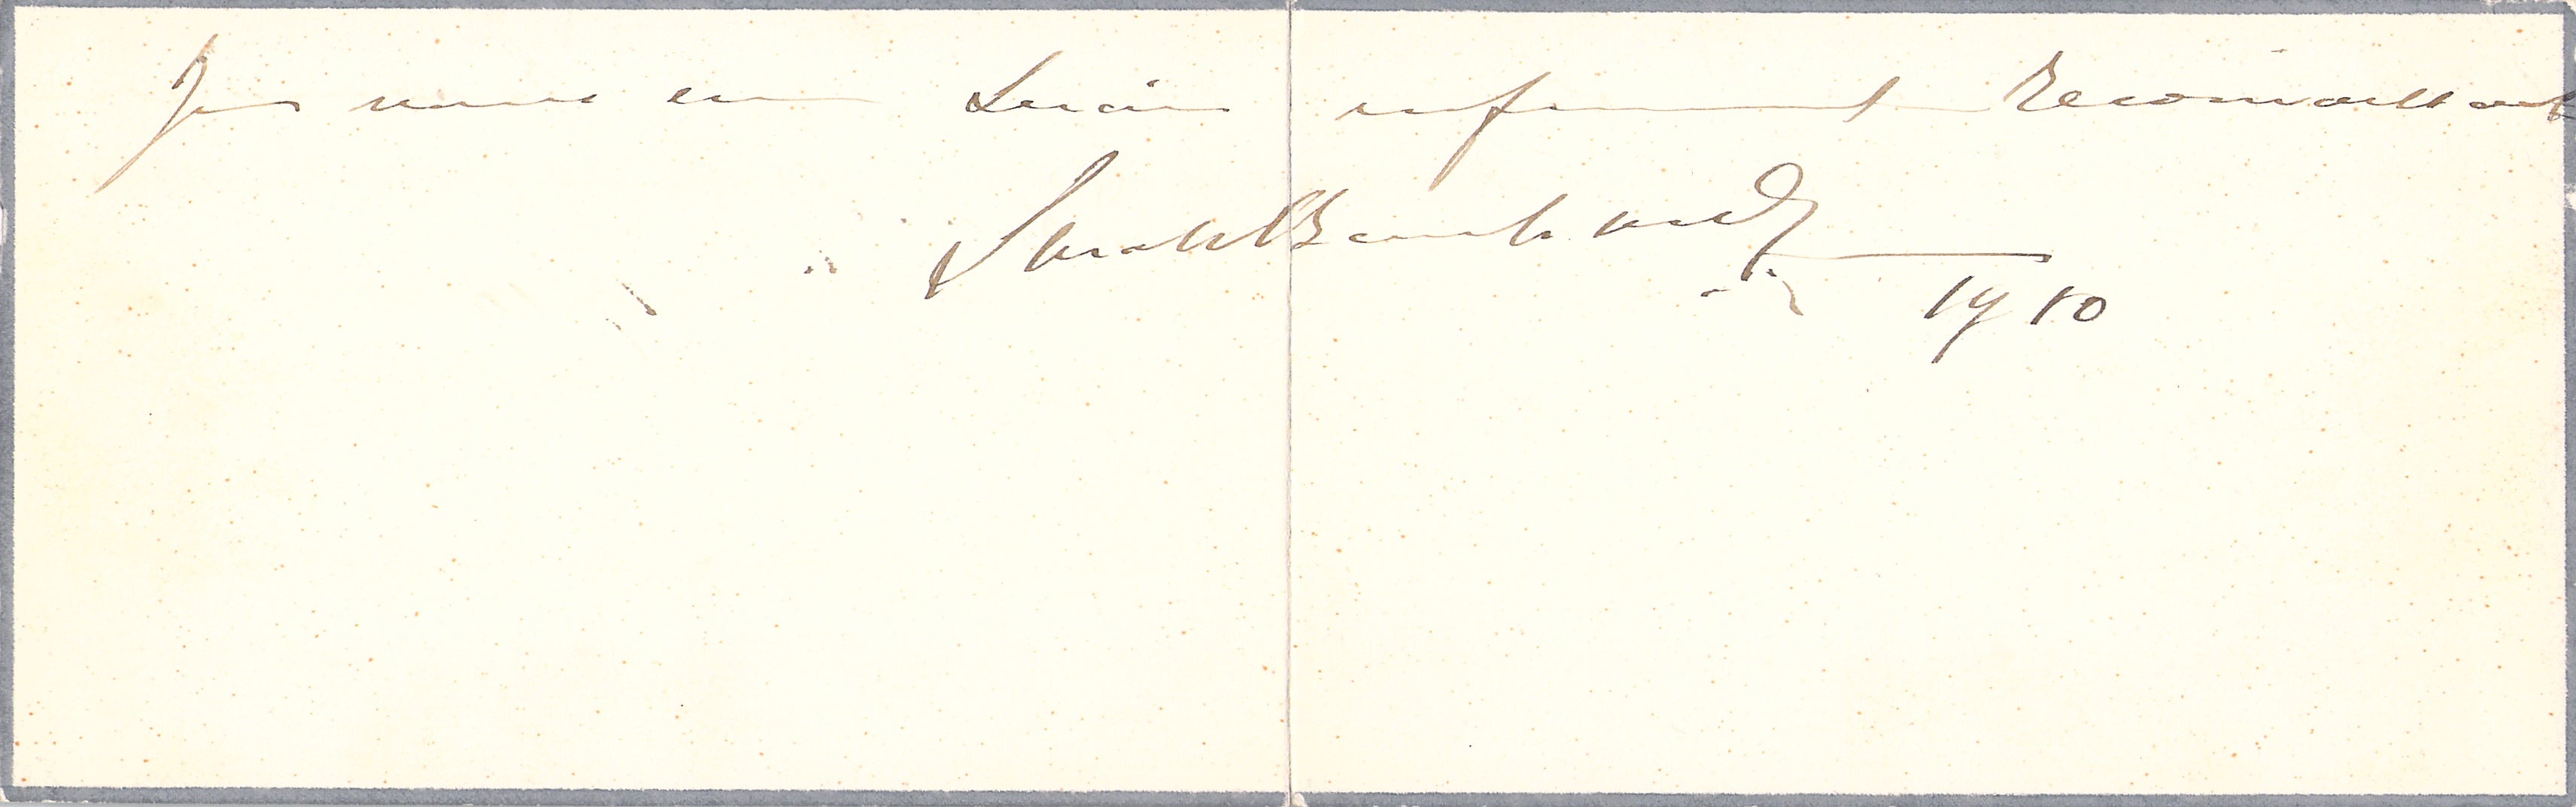 Je vous en suis infiniment Reconnaissante
Sarah Bernhardt
1910